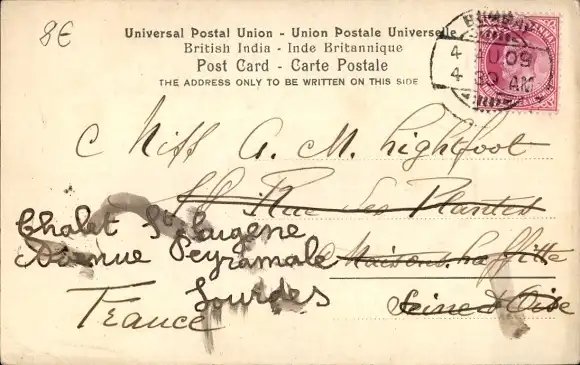 8€
Universal Postal Union - Union Postale Universelle
British India - Inde Britannique
Post Card - Carte Postale
THE ADDRESS ONLY TO BE WRITTEN ON THIS SIDE
BOMBAY
4 AU 09
4 30 AM
Miss A. M. Lightfoot
Rue des Plantes
Chalet St Eugene
Avenue Peyramale
Maisons Laffitte
Lourdes
Seine & Oise
France